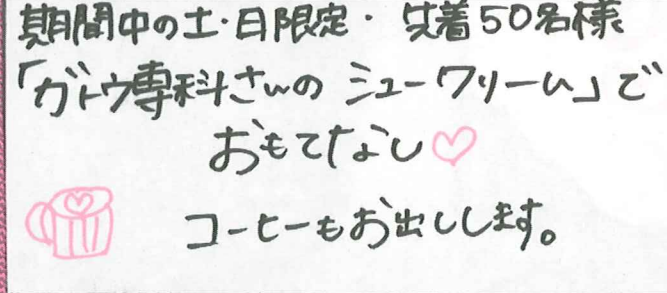 期間中の土・日限定・先着50名様
「ガトウ専科さんのシュークリーム」で
おもてなし♡
コーヒーもお出しします。